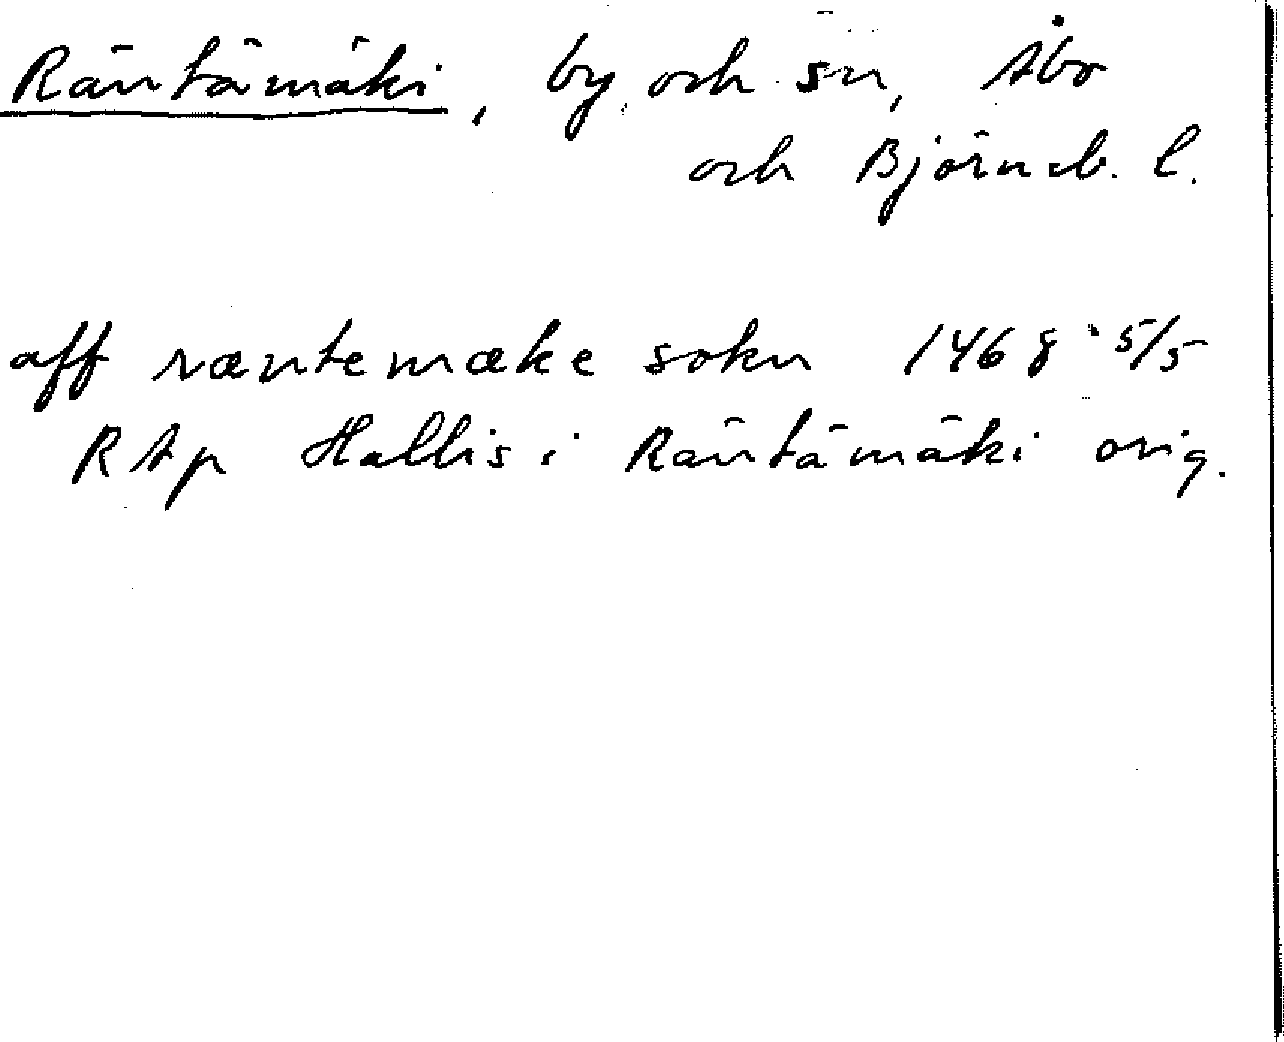 Räntämäki, by och sn, Åbo
och Björneb. l.
aff ræntemæke sokn 1468 5/5
RAp Hallis i Räntämäki orig.